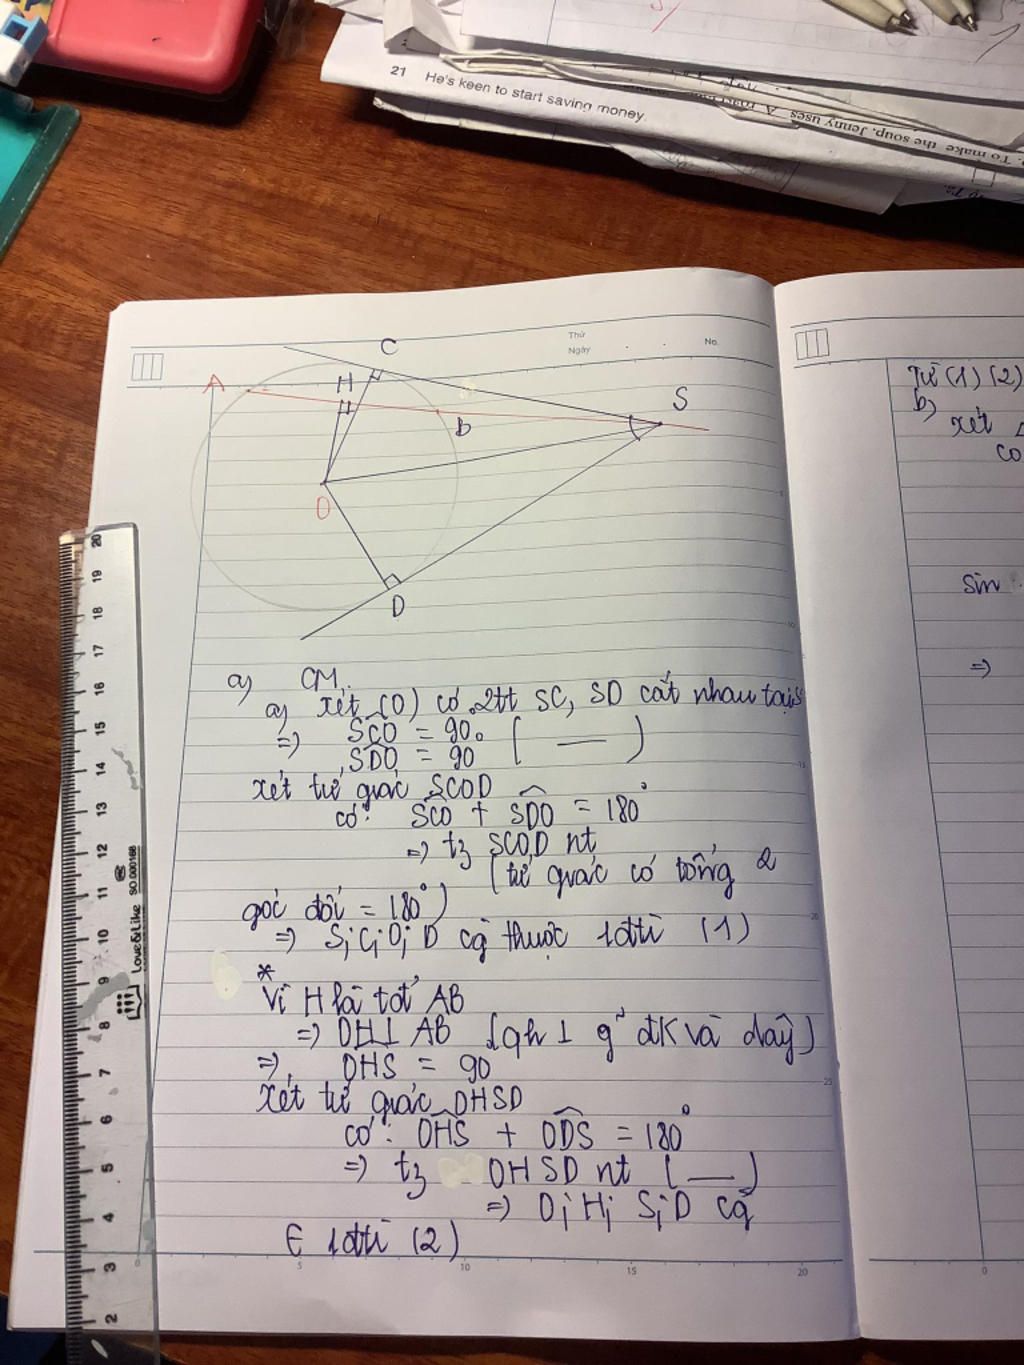 21 He's keen to start saving money.
To make the soup, Jenny uses
Thứ
Ngày
No.
C
A
H
S
b
O
D
a) CM:
a) Xét (O) có 2tt SC, SD cắt nhau tại S
=> SCO = 90°
SDO = 90 ( — )
Xét tứ giác SCOD
có: SCO + SDO = 180°
=> tg SCOD nt
(tứ giác có tổng 2
góc đối = 180°)
=> S; C; O; D cg thuộc 1 đtr (1)
*
Vì H là tđ AB
=> OH ⊥ AB (qh ⊥ g đk và dây)
=> OHS = 90
Xét tứ giác OHSD
có: OHS + ODS = 180°
=> tg OHSD nt ( — )
=> O; H; S; D cg
∈ 1 đtr (2)
Từ (1) (2)
b)
Xét Δ
có
Sin
=>
Love&Like SO.000168
20 19 18 17 16 15 14 13 12 11 10 9 8 7 6 5 4 3 2
0 5 10 15 20
5 10 15 20 25
0